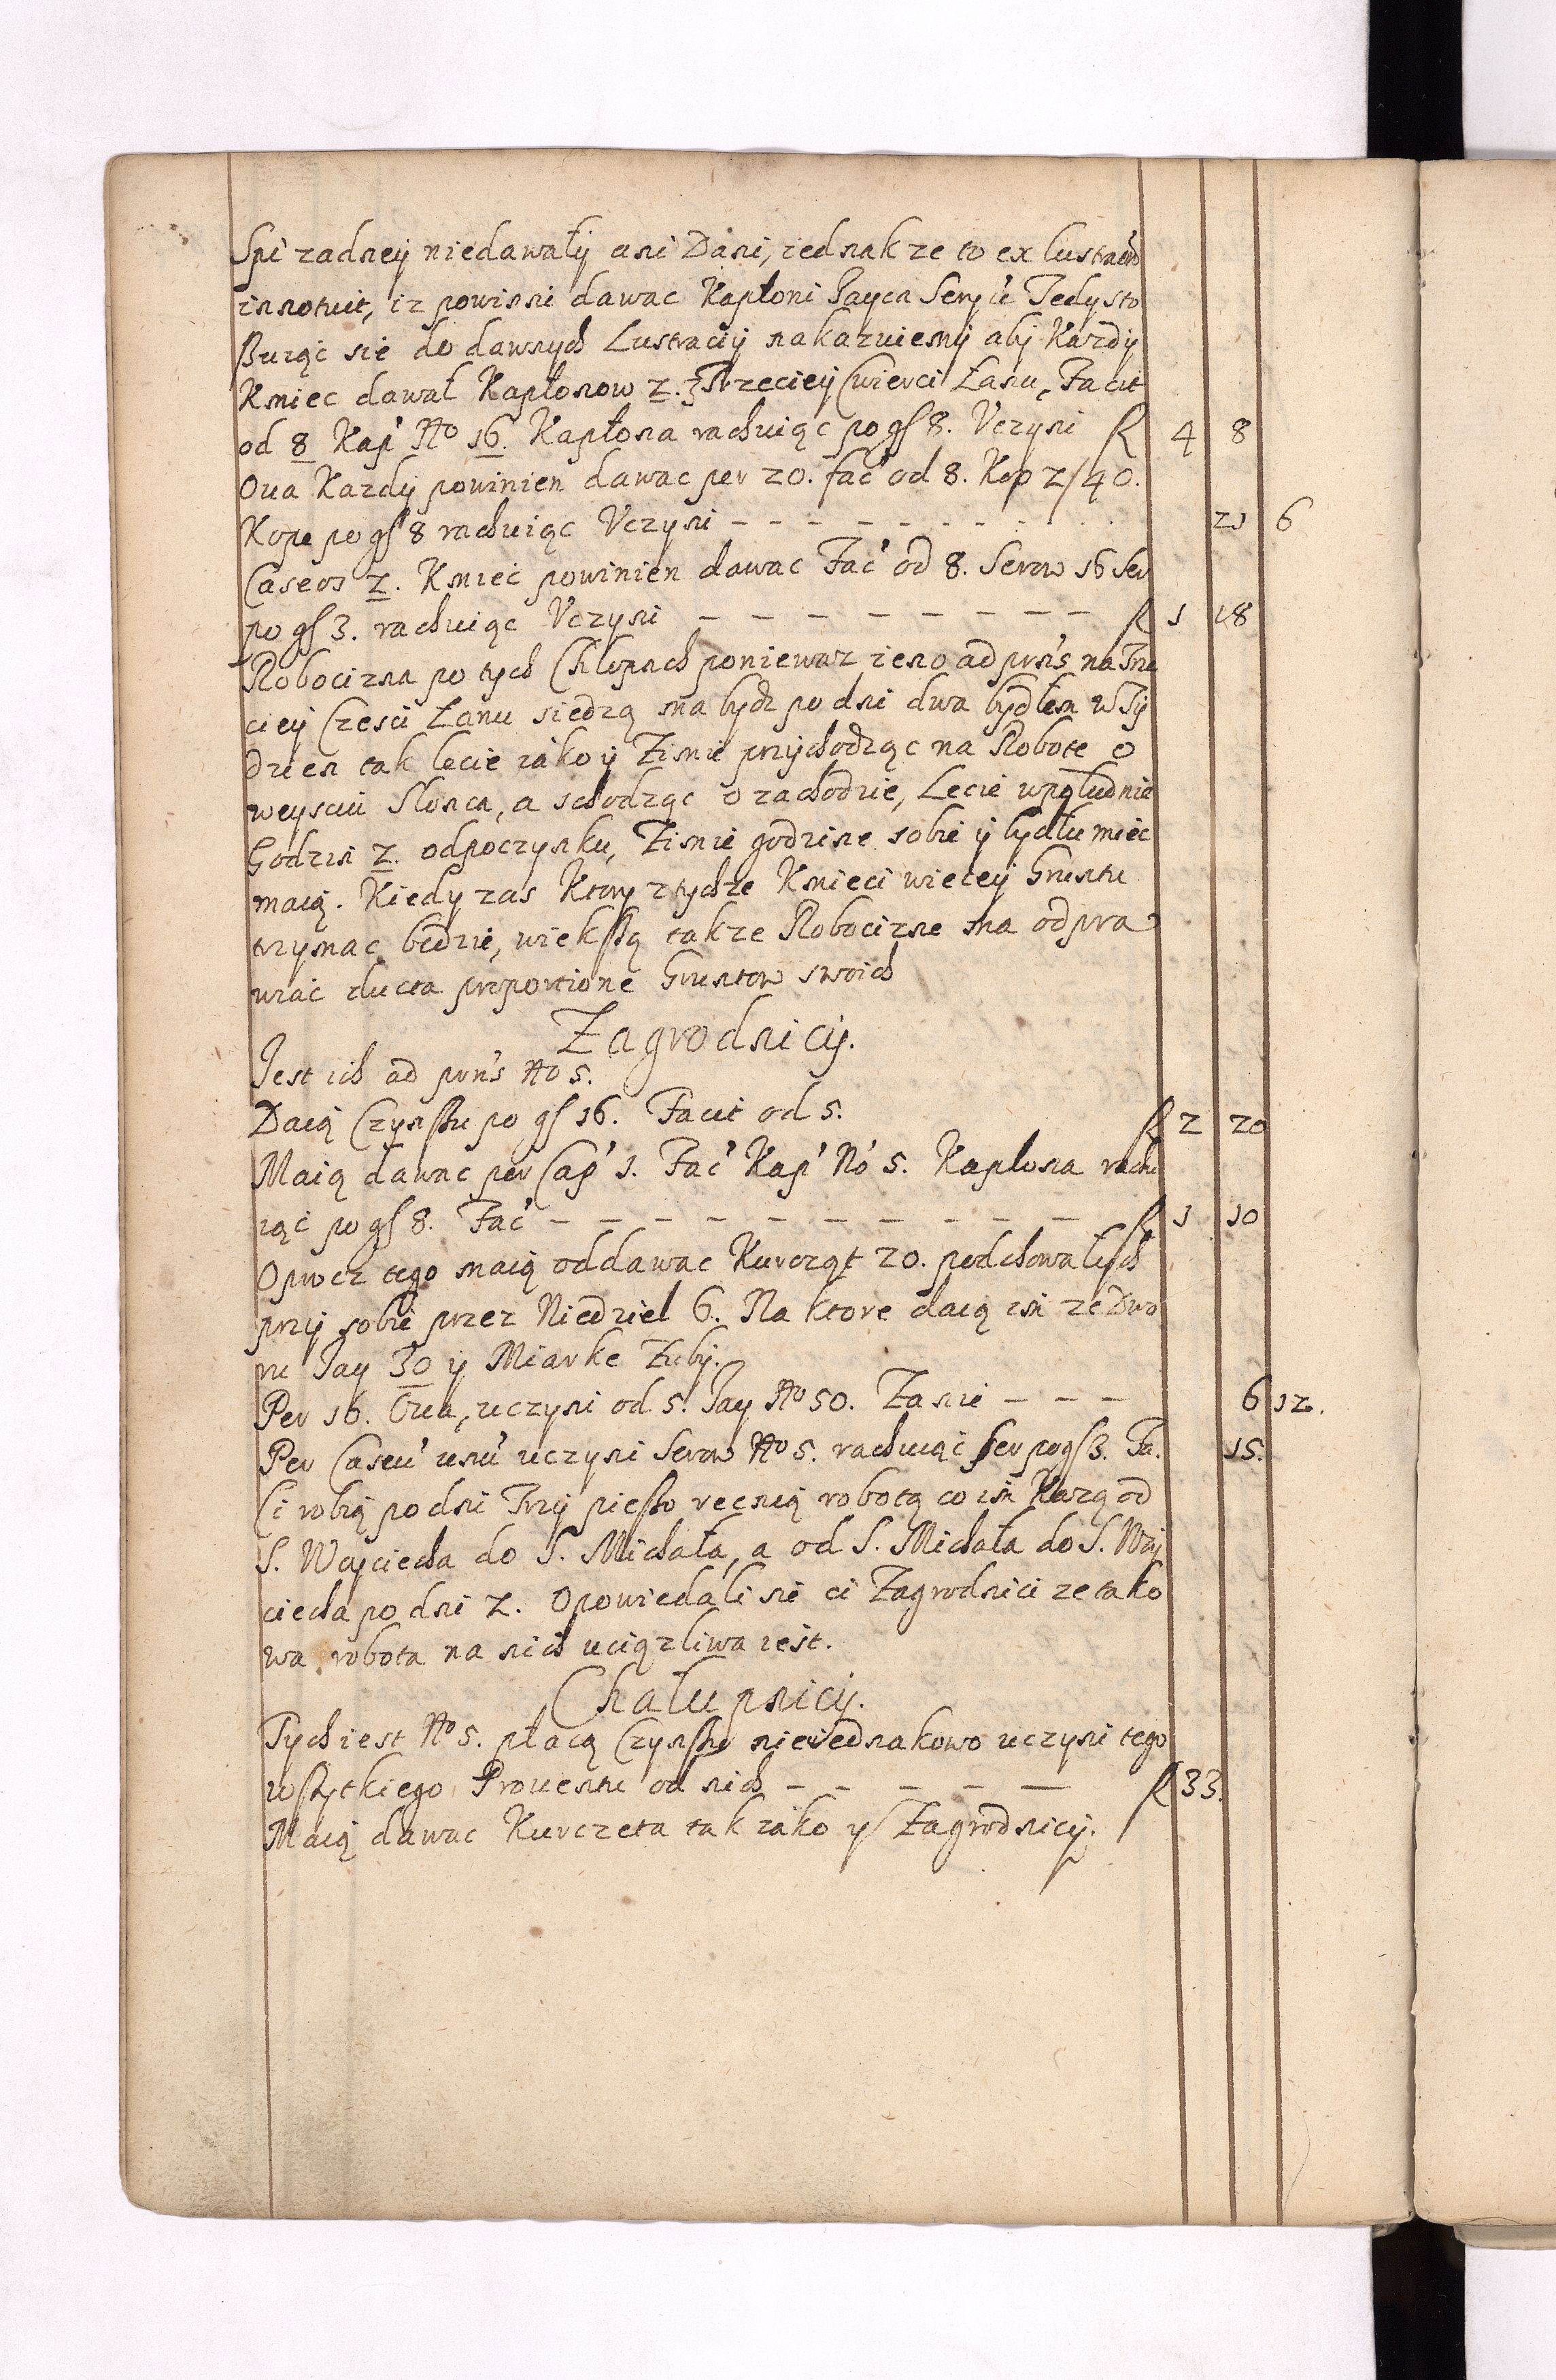 Spi zadney niedawały ani Dani, iednak ze to ex lustraõõ
innotuit, iz powinni dawac Kapłoni Jayca Sery iż Tedy sto
suiąc sie do dawnych Lustraciy nakazuiemy aby Kazdy
Kmiec dawał Kapłonow 2. z Trzeciey Cwierci Łanu, Facit
od 8 Kap' No 16. Kapłona rachuiąc po gſ 8. Vczyni f 4 8
Ova Kazdy powinien dawac per 20. fac' od 8. Kop 2/40.
Kope po gſ 8 rachuiąc Vczyni - - - - - - - - - 21 6
Caseos 2. Kmiec powinien dawac Fac' od 8. Serow 16 Ser
po gſ 3. rachuiąc Vczyni - - - - - - - - - f 1 18
Robocizna po tych Chłopach poniewaz ieno ad prn's na Trze
ciey Czesci Łanu siedzą ma bydz po dni dwa bydłem w Ty
dzien tak lecie iako y Zimie przychodząc na Robote o
weysciu Słonca, a schodząc o zachodzie, Lecie wpołudnie
Godzin 2. odpoczynku, Zimie godzine sobie y bydłu miec
maią. Kiedy zas Ktory z tychze Kmieci wiecey Gruntu
trzymac bedzie, wiekszą takze Robocizne ma odpra
wiac ducta proportione Gruntow swoich
Zagrodnicy.
Jest ich ad prn's No 5.
Daią Czynszu po gſ 16. Facit od 5. f 2 20
Maią dawac per Cap' 1. Fac' Kap' No 5. Kapłona rachu
iąc po gſ 8. Fac' - - - - - - - - - - f 1 10
Oprocz tego maią oddawac Kurcząt 20. podchowałych
przy sobie przez Niedziel 6. Na ktore daią im ze Dwo
ru Jay 30 y Miarke Zuby.
Per 16. Ova, uczyni od 5. Jay No 50. Za nie - - - 6 12.
Per Caseu' unu' uczyni Serow No 5. rachuiąc Ser po gſ 3. Fa. 15.
Ci robią po dni Trzy pieszo reczną robotą co im Kazą od
S. Woyciecha do S. Michała, a od S. Michała do S. Woy
ciecha po dni 2. Opowiedali sie ci Zagrodnici ze tako
wa robota na nich uciązliwa iest.
Chałupnicy.
Tych iest No 5. płacą Czynszu nieiednakowo uczyni tego
wszytkiego Prouentu od nich - - - - - f 33.
Maią dawac Kurczeta tak iako y Zagrodnicy.